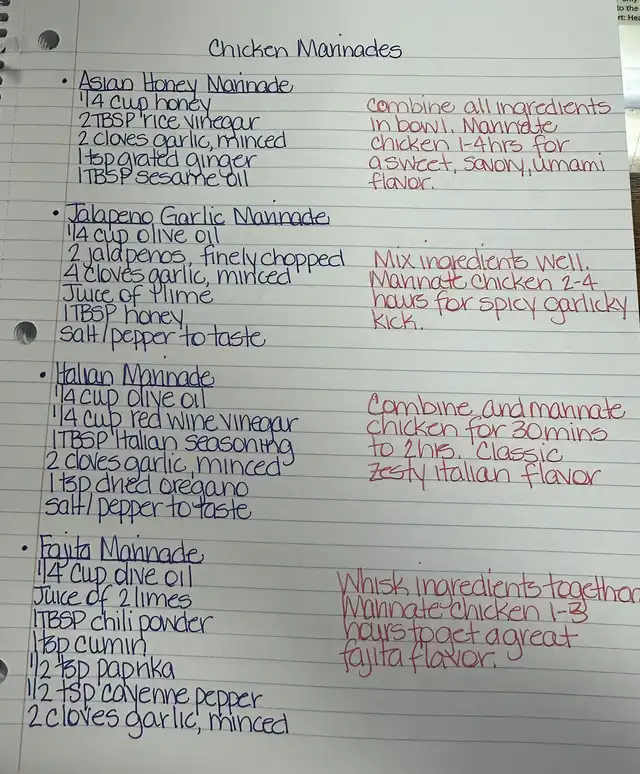 to the
rt: Hea
Chicken Marinades
• Asian Honey Marinade
1/4 cup honey
2 TBSP rice vinegar
2 cloves garlic, minced
1 tsp grated ginger
1 TBSP sesame oil
combine all ingredients
in bowl. Marinate
chicken 1-4hrs for
a sweet, savory, umami
flavor.
• Jalapeno Garlic Marinade
1/4 cup olive oil
2 jalapenos, finely chopped
4 cloves garlic, minced
Juice of 1 lime
1 TBSP honey
salt/pepper to taste
Mix ingredients well.
Marinate chicken 2-4
hours for spicy garlicky
kick.
• Italian Marinade
1/4 cup olive oil
1/4 cup red wine vinegar
1 TBSP Italian seasoning
2 cloves garlic, minced
1 tsp dried oregano
salt/pepper to taste
Combine and marinate
chicken for 30mins
to 2hrs. Classic
zesty Italian flavor
• Fajita Marinade
1/4 cup olive oil
Juice of 2 limes
1 TBSP chili powder
1 tsp cumin
1/2 tsp paprika
1/2 tsp cayenne pepper
2 cloves garlic, minced
Whisk ingredients together
Marinate chicken 1-3
hours to get a great
fajita flavor.